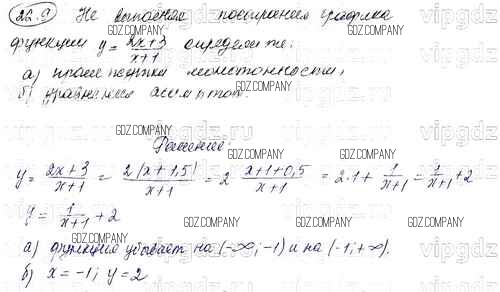 22.9 Не выполняя построения графика
функции y = 2x+3/x+1 определите:
а) промежутки монотонности,
б) уравнения асимптот.
Решение:
y = 2x+3/x+1 = 2(x+1,5)/x+1 = 2 x+1+0,5/x+1 = 2·1+ 1/x+1 = 1/x+1 +2
y = 1/x+1 + 2
а) функция убывает на (-∞; -1) и на (-1; +∞).
б) x = -1; y = 2
GDZ.COMPANY
GDZ.COMPANY
GDZ.COMPANY
GDZ.COMPANY
GDZ.COMPANY
GDZ.COMPANY
GDZ.COMPANY
GDZ.COMPANY
GDZ.COMPANY
GDZ.COMPANY
GDZ.COMPANY
vipgdz
vipgdz
vipgdz
vipgdz